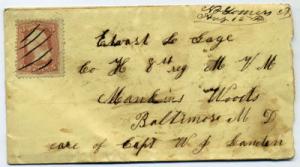 Edward L Gage
Co H 8th reg M V M
Mankins Woods
Baltimore M D
care of Capt W J Landen